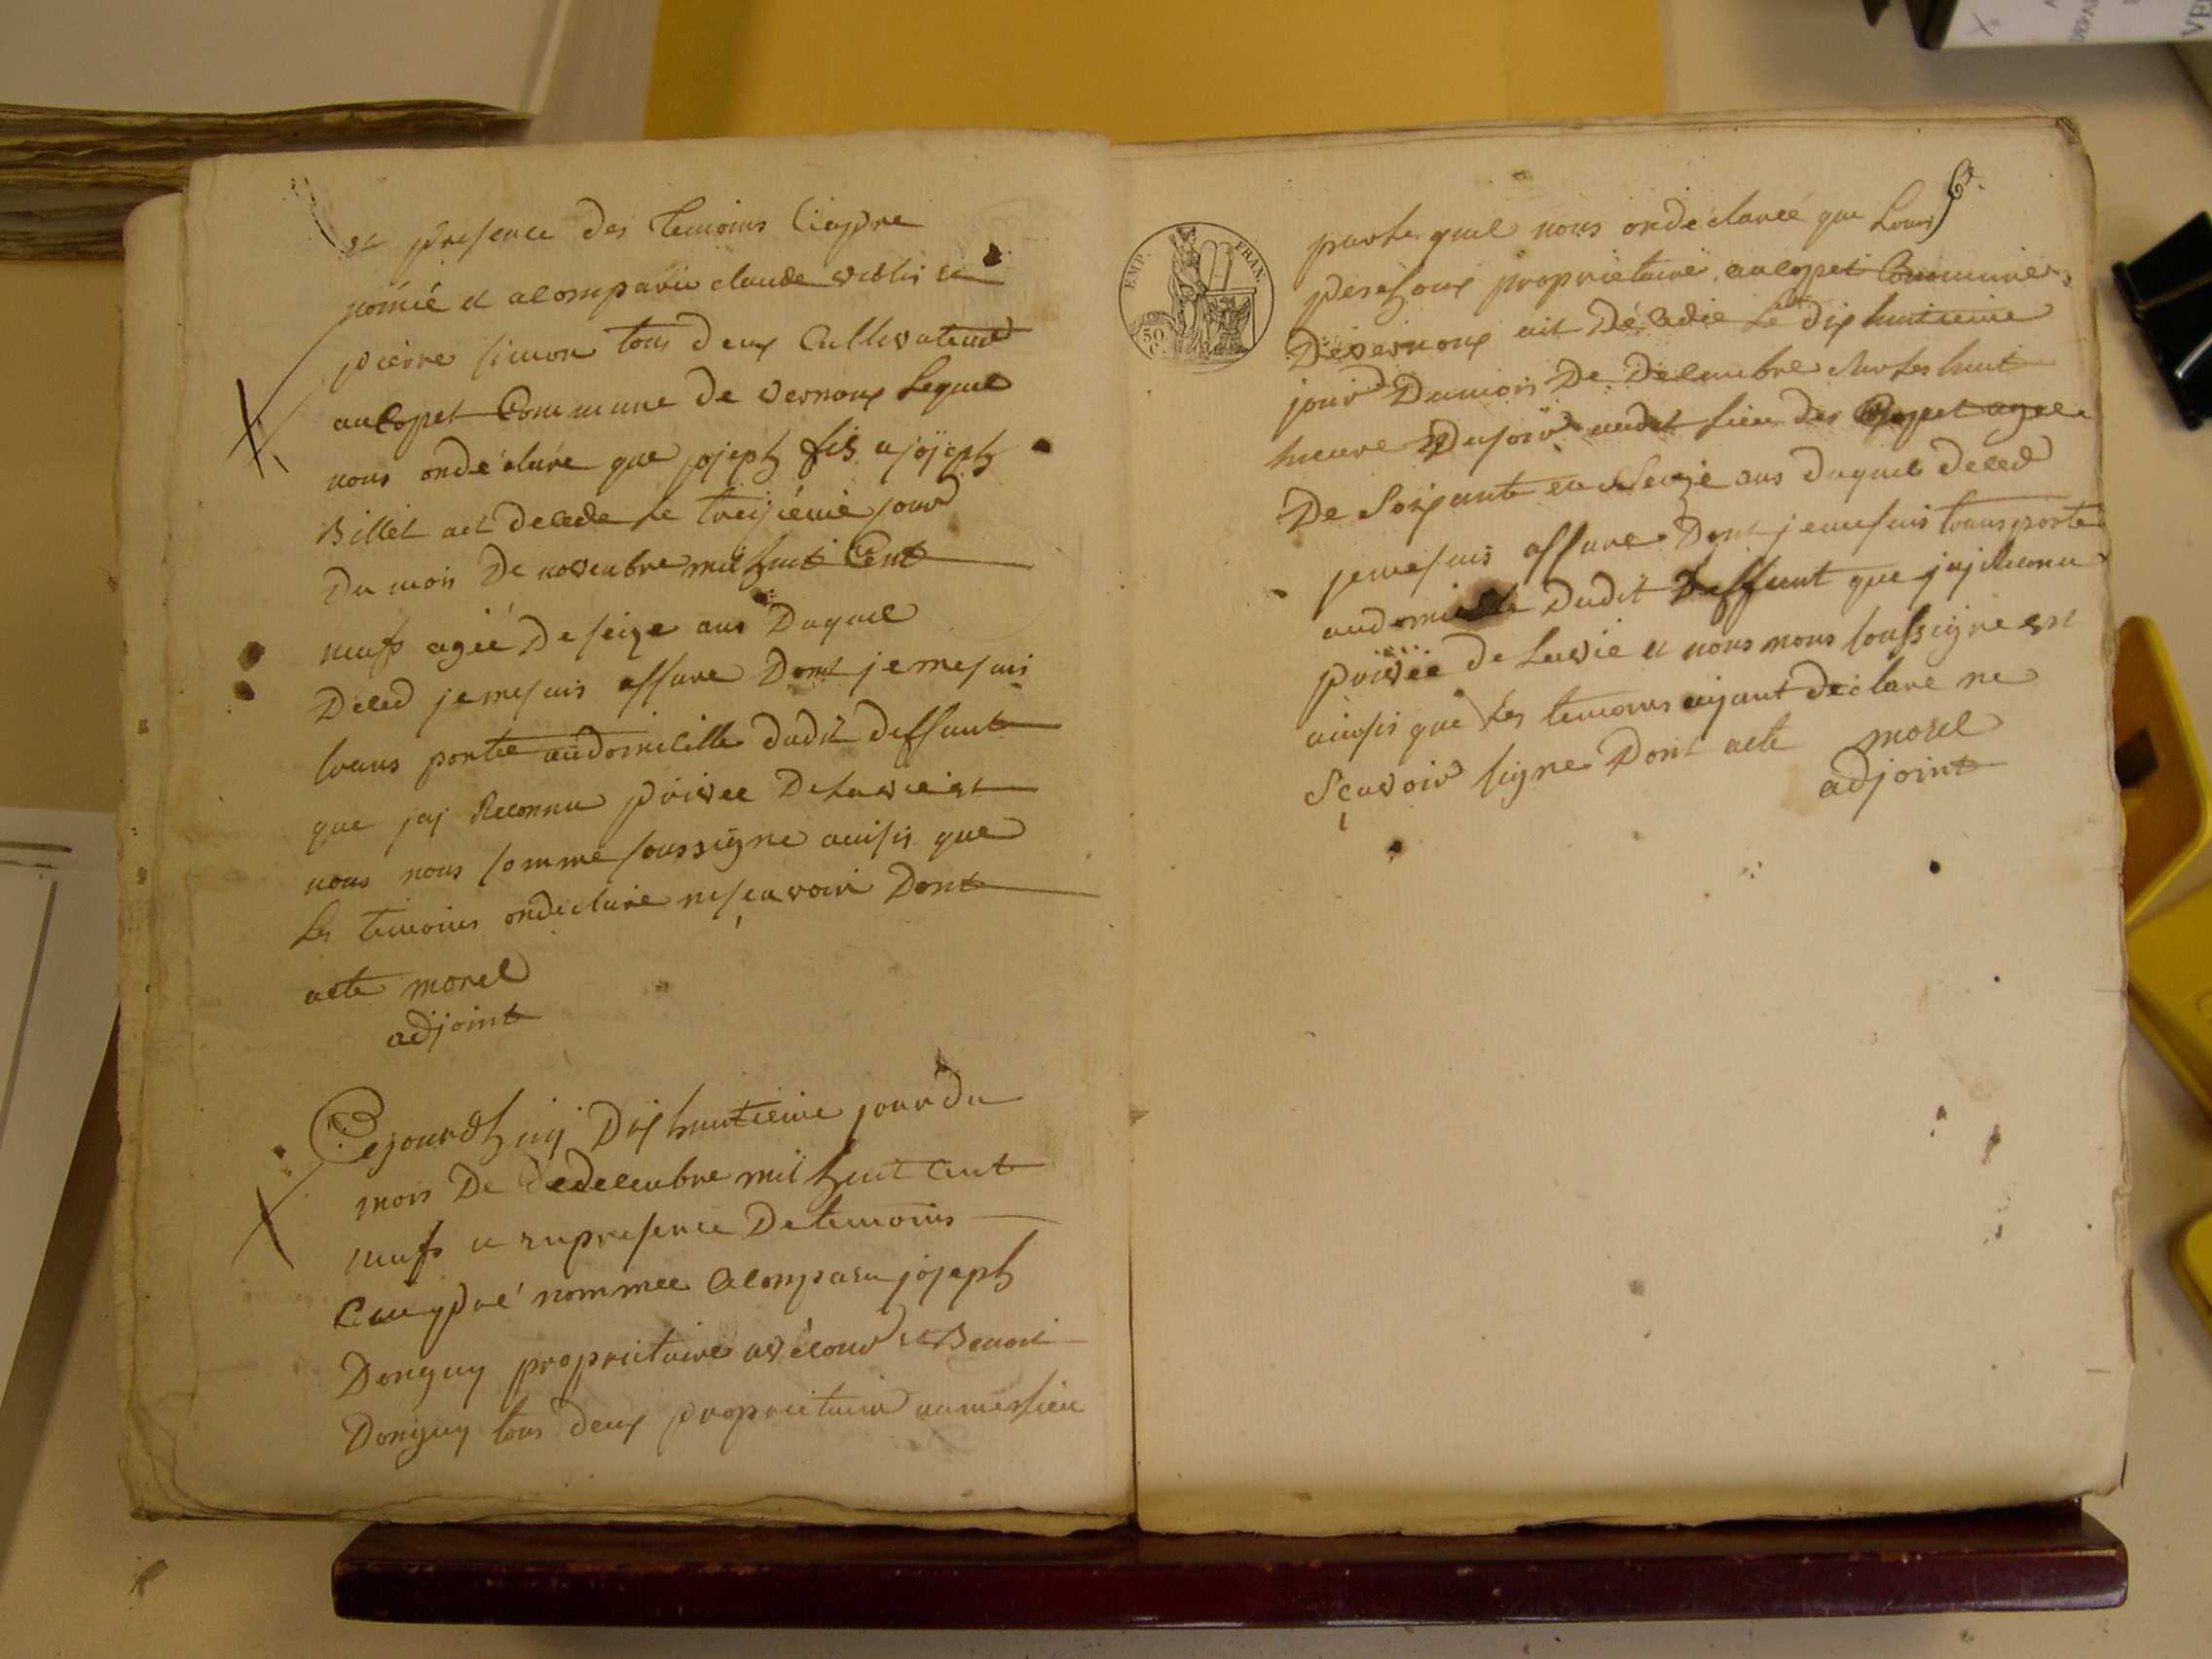 et presence des temoins Ciapre
nomié et a comparu claude et
pierre simon tous deux Cultivateur
au Copet Commune de vernoux Lequel
nous ondéclaré que joseph fis a joseph
Billet ait decede Le treiziéme jour
Du mois De novembre mil huit Cent
neufs ageé De seize ans Duquel
Deced je me suis assure Dont je me suis
trans portée au domicille dudit deffunt
que jaj Reconnu privee De La vie et
nous nous somme soussigne ainsis que
Les temoins ondeclare ne sçavoir Dont
acte morel
adjoint
Cejourdhuij Dix huitieme jour du
mois De dedecembre mil huit Cent
neufs en presence De temoins
pré nommee a Comparu joseph
Donguy proprietaire et Benoit
Donguy tous deux proprietair au
6
EMP. FRAN.
50 C.
par Les quel nous ondéclareé que Louis
proprietaire au Copet Commune
De vernoux ait Décedie Le Dix huitieme
jour Du mois De Decembre sur Les huit
heure Du soir audit lieu des Copet agee
De Soixante et Seize ans duquel deced
je me suis assure Dont je me suis transporte
au domicile Dudit Deffunt que jaj Reconu
privée de La vie et nous nous soussigne et
ainsis que Les temoins aijant declare ne
Sçavoir signe Dont acte morel
adjoint